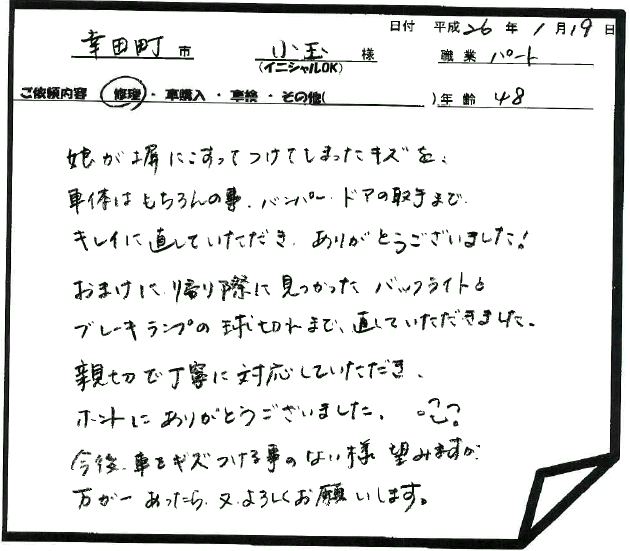 日付 平成 26 年 1 月 19 日
幸田町 市 小玉 様 職業 パート
(イニシャルOK)
ご依頼内容 修理・車購入・車検・その他( )年齢 48
娘が塀にこすってつけてしまったキズを、
車体はもちろんの事、バンパー、ドアの取手まで
キレイに直していただき、ありがとうございました!
おまけに、帰り際に見つかったバックライトと
ブレーキランプの球切れまで、直していただきました。
親切で丁寧に対応していただき、
ホントにありがとうございました。
今後、車をキズつける事のない様望みますが、
万が一あったら、又、よろしくお願いします。